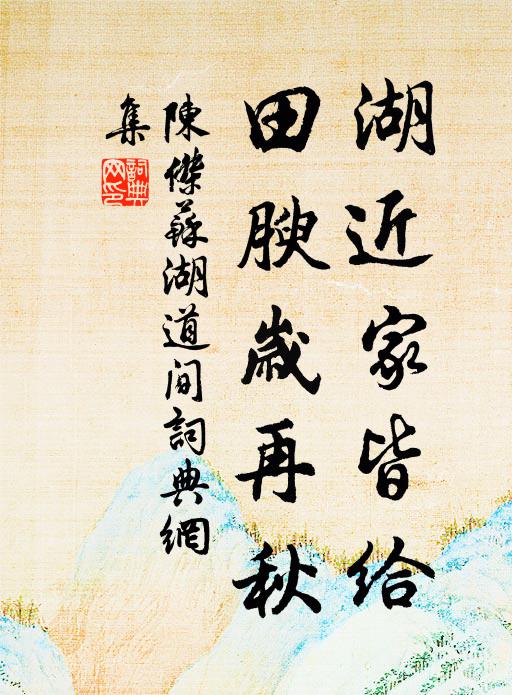 湖近家皆給
田腴歲再秋
陳傑蘇湖道间詞典網
集
詞典网印